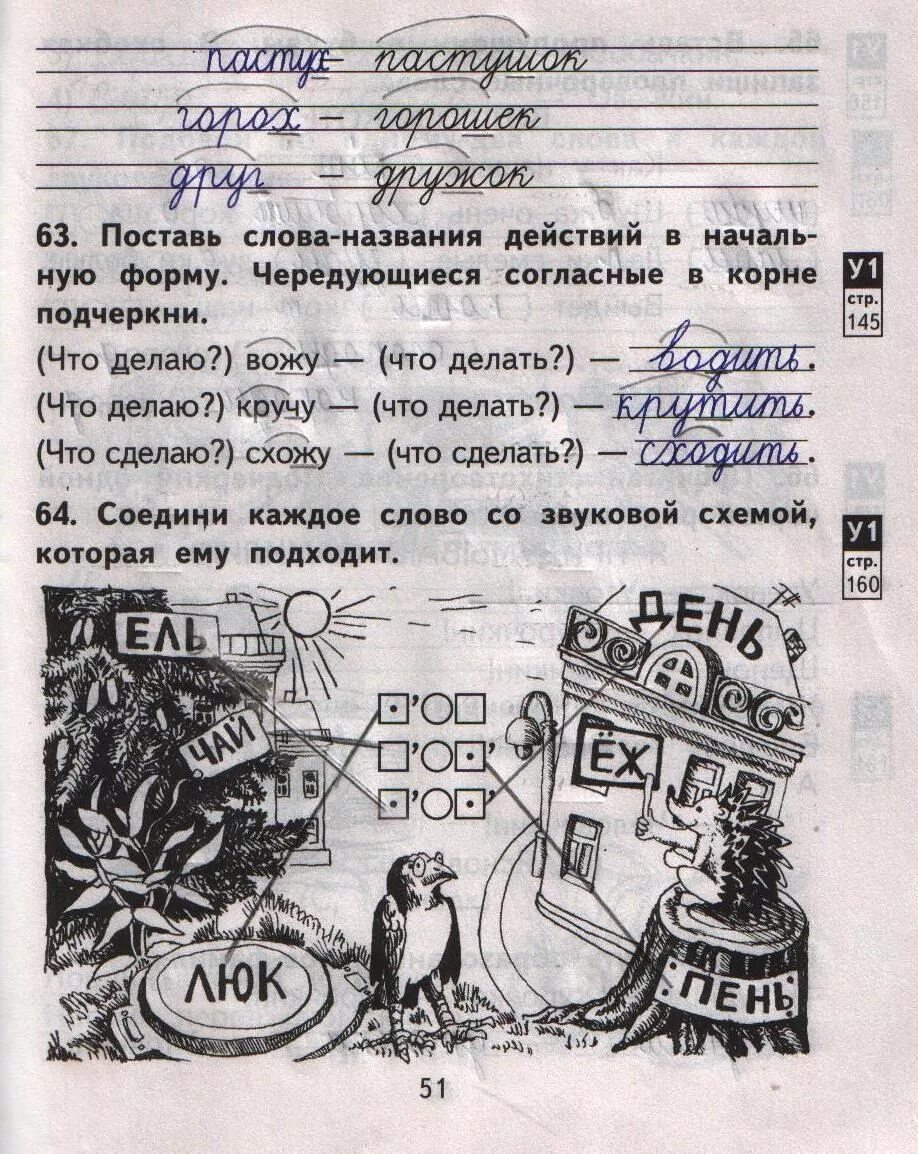 пастух — пастушок
горох — горошек
друг — дружок
63. Поставь слова-названия действий в началь-
ную форму. Чередующиеся согласные в корне
подчеркни.
У1
стр.
145
(Что делаю?) вожу — (что делать?) — водить.
(Что делаю?) кручу — (что делать?) — крутить.
(Что сделаю?) схожу — (что сделать?) — сходить.
64. Соедини каждое слово со звуковой схемой,
которая ему подходит.
У1
стр.
160
ЕЛЬ
ДЕНЬ
ЧАЙ
ЁЖ
ЛЮК
ПЕНЬ
51